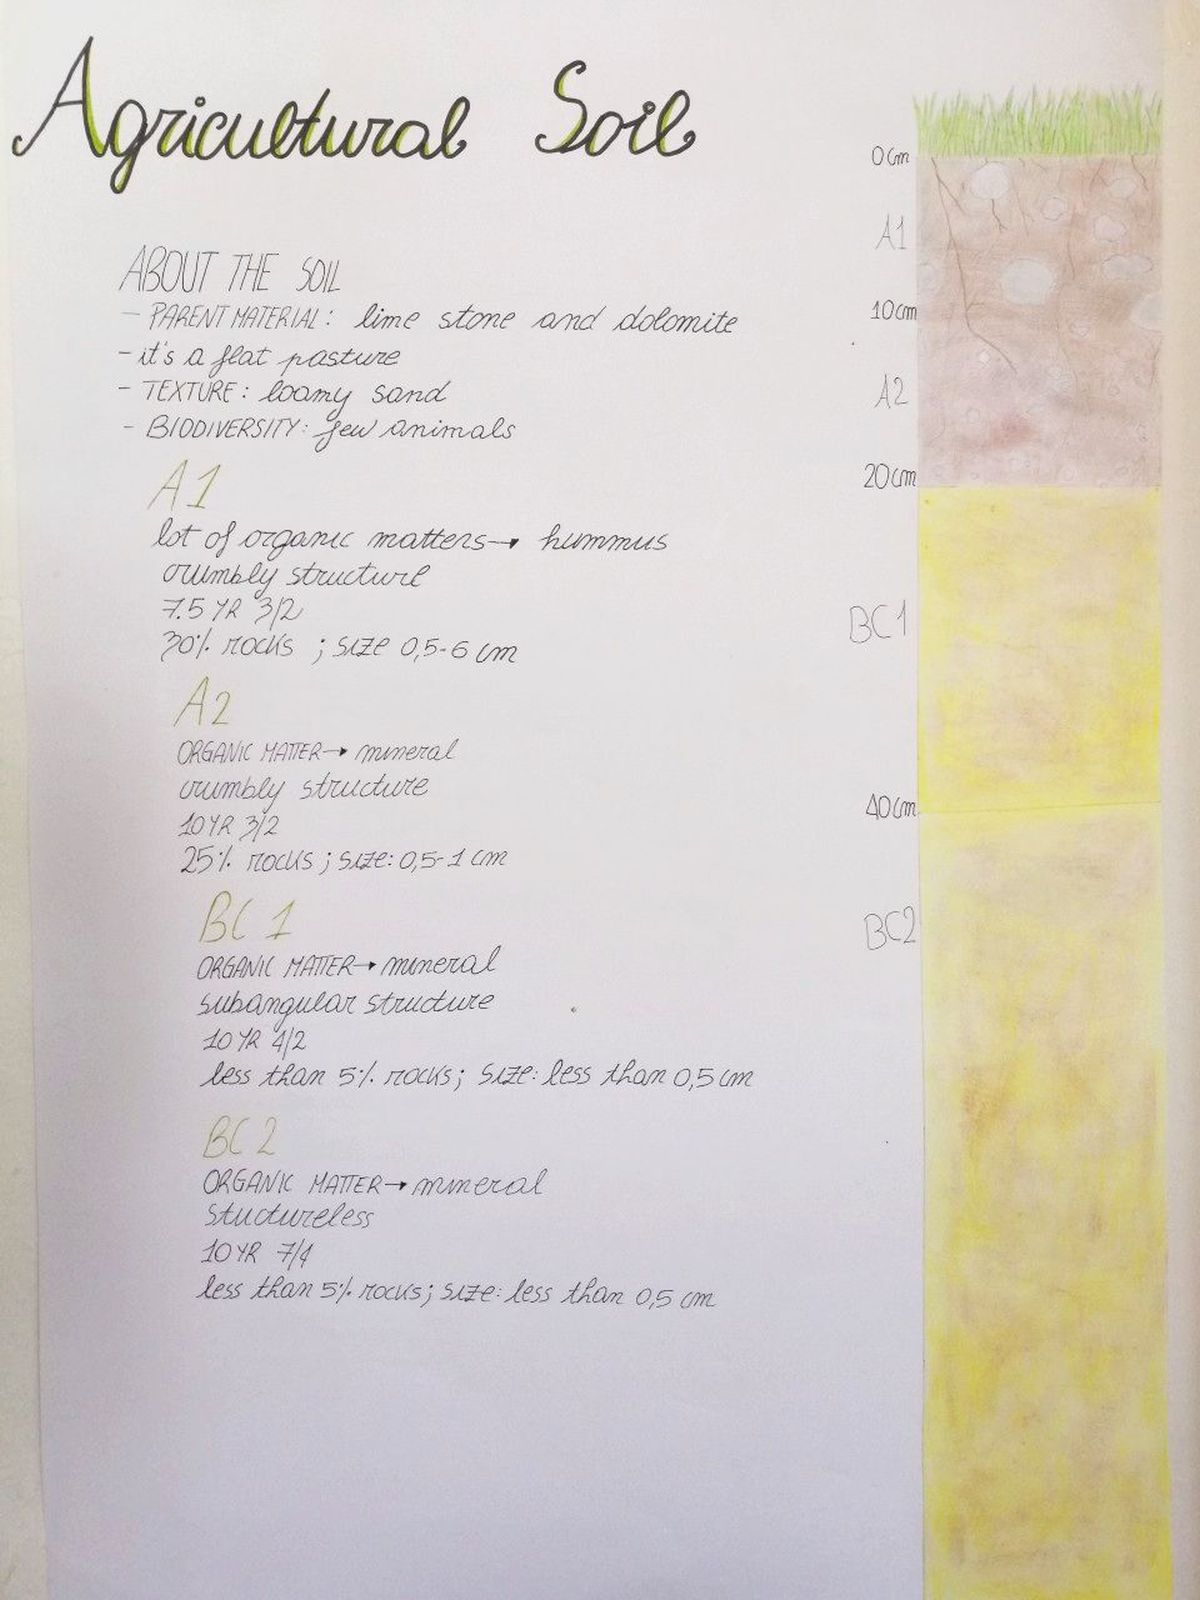 Agricultural Soil
ABOUT THE SOIL
- PARENT MATERIAL: lime stone and dolomite
- it's a flat pasture
- TEXTURE: loamy sand
- BIODIVERSITY: few animals
A1
lot of organic matters→ hummus
crumbly structure
7.5 YR 3/2
30% rocks ; size 0,5-6 cm
A2
ORGANIC MATTER→ mineral
crumbly structure
10 YR 3/2
25% rocks ; size: 0,5-1 cm
BC 1
ORGANIC MATTER→ mineral
subangular structure
10 YR 4/2
less than 5% rocks; size: less than 0,5 cm
BC 2
ORGANIC MATTER→ mineral
stuctureless
10 YR 7/4
less than 5% rocks; size: less than 0,5 cm
0cm
A1
10cm
A2
20cm
BC1
40cm
BC2